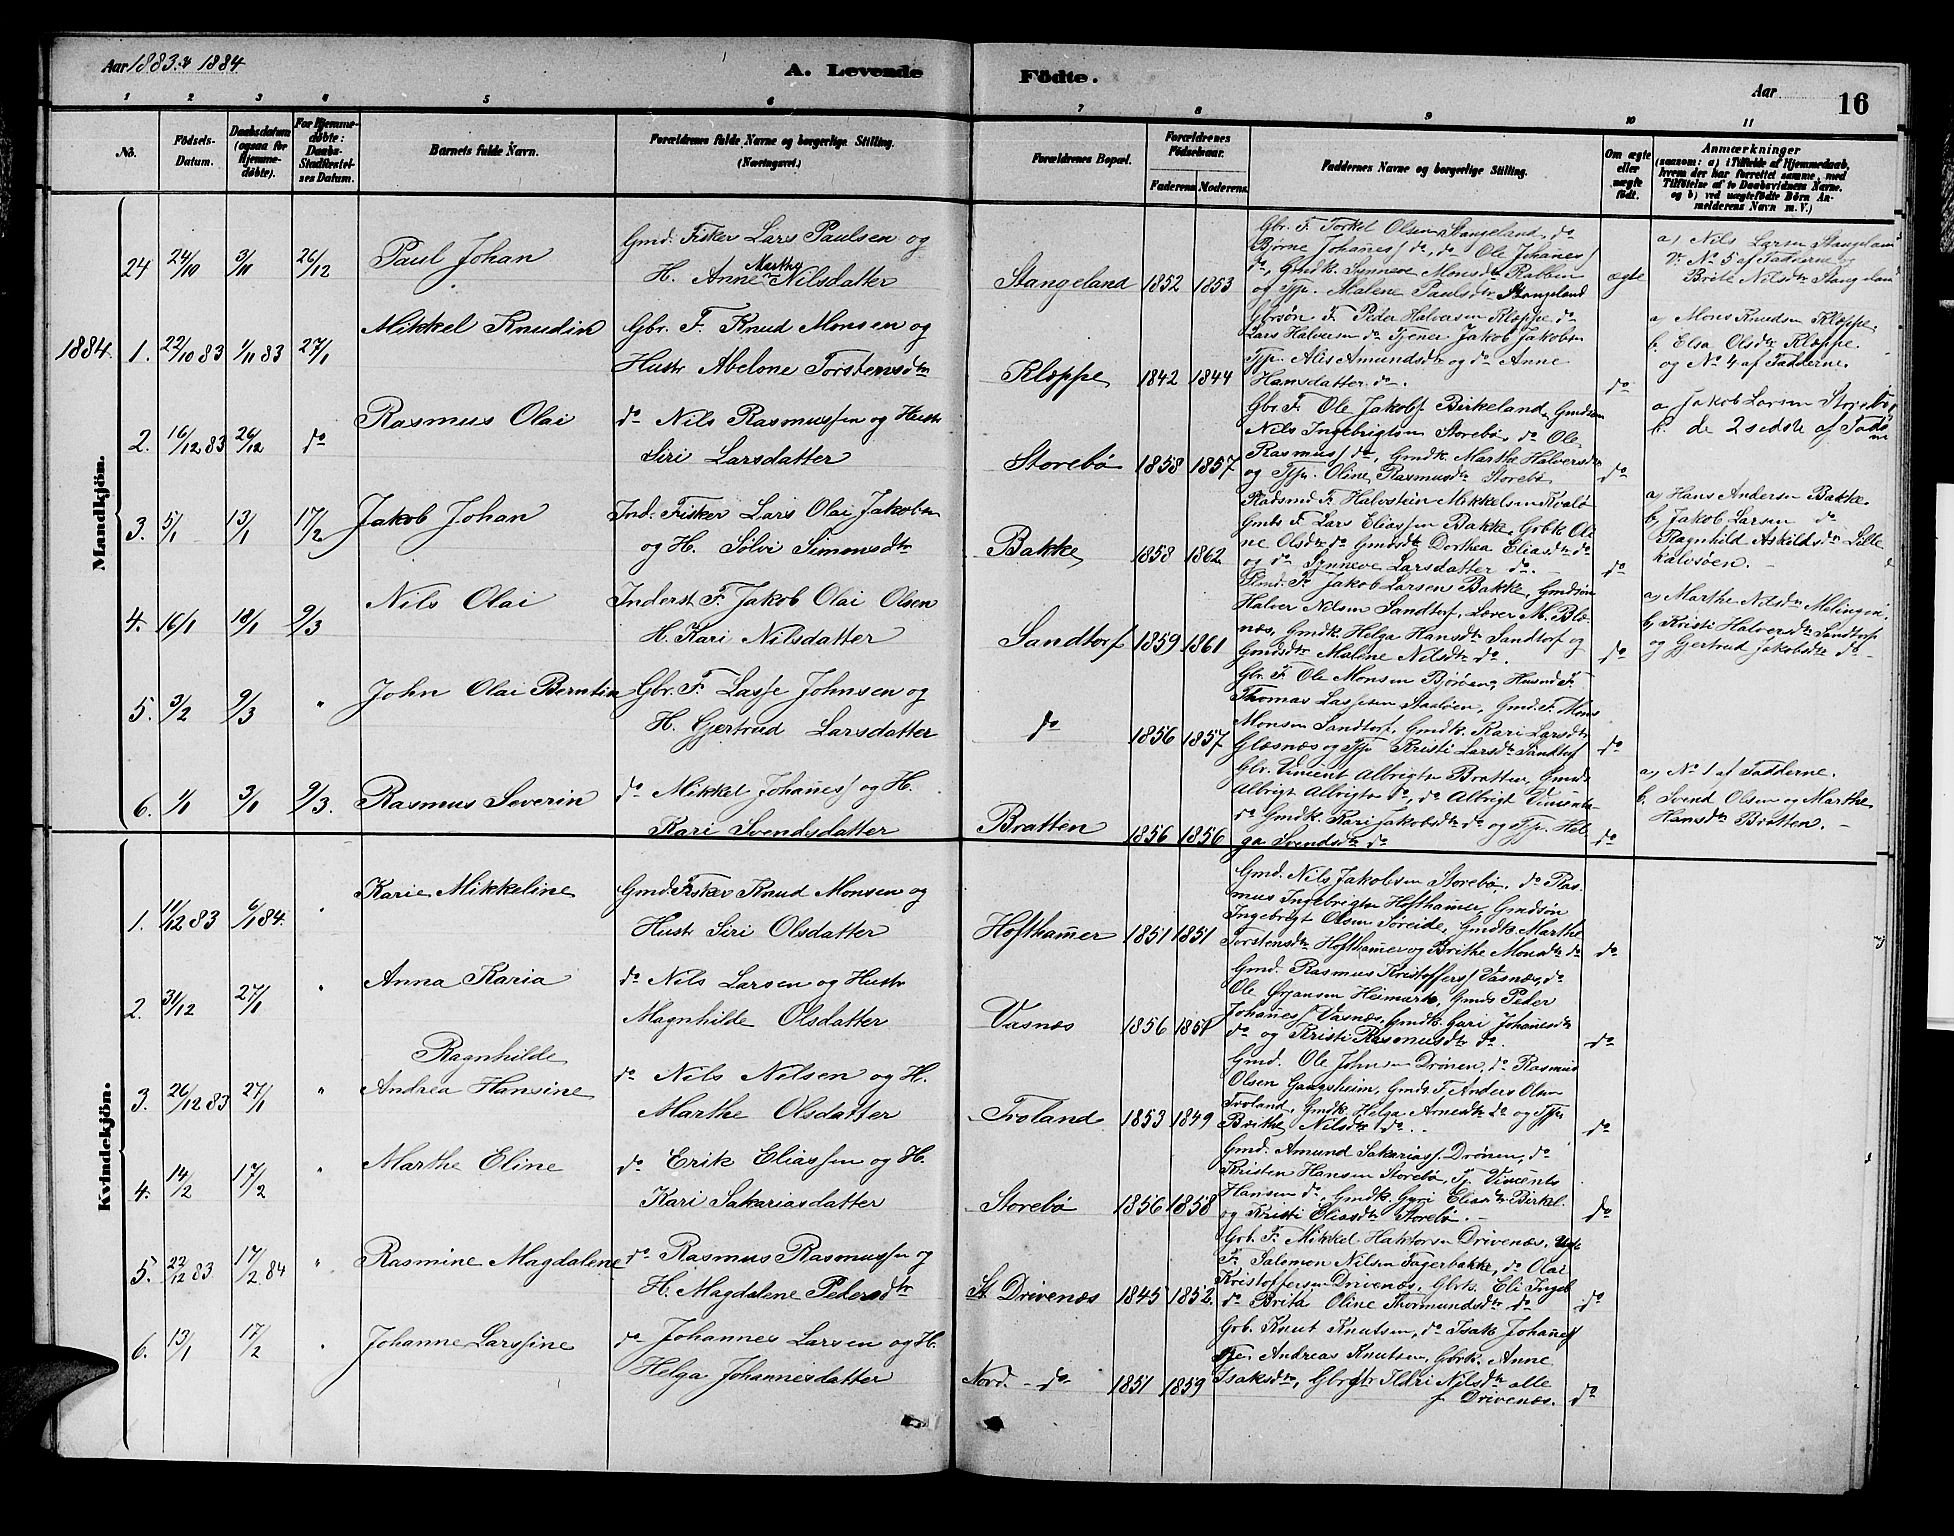 Aar 1883 & 1884
A. Levende Fødte.
Aar
16
1 2 3 4 5 6 7 8 9 10 11
No.
Fødsels-Datum.
Daabsdatum (ogsaa for Hjemme-døbte).
For Hjemme-døbte: Daabs-Stadfæstel-ses Datum.
Barnets fulde Navn.
Forældrenes fulde Navne og borgerlige Stilling. (Næringsvei.)
Forældrenes Bopæl.
Forældrenes Fødselsaar.
Faderens Moderens
Faddernes Navne og borgerlige Stilling.
Om ægte eller uægte født.
Anmærkninger
(saasom: a) i Tilfælde af Hjemmedaab, hvem der har forrettet samme, med Tilføielse af to Daabsvidners Navne. og b) ved uægtefødte Børn An-melderens Navn m. V.)
Mandkjøn.
24 24/10 3/11 26/12 Paul Johan
Gmd. Fisker Lars Paulsen og
H. Anne Marthe Nilsdatter
Stangeland 1852 1853
Gbr. F. Torkel Olsen Stangeland, do
Bjørne Johanes/ do, do Ole Johanes/
do, Gmdk. Synneve Monsdtr Rabben
og Tjp. Malene Paulsdtr Stangeland
ægte
a) Nils Larsen Stangelan
No 5 af Fadderne og
Brite Nilsdtr Stangelan
1884. 1. 22/10 83 1/11 83 27/1 Mikkel Knudin
Gbr. F. Knud Monsen og
Hustr Abelone Torstensdtr
Kleppe 1842 1844
Gbrsøn F. Peder Halvorsen Kleppe do
Lars Halvorsen do Tjener Jakob Jakobsen
Tjp. Alis Amundsdtr og do Anne
Hansdatter do.
do
a) Mons Knudsen Kleppe.
b. Elsa Olsdtr Kleppe.
og No 4 af Fadderne.
2. 16/12 83 26/12 do Rasmus Olai
do Nils Rasmussen og Hustr
Siri Larsdatter
Storebø 1858 1857
Gbr. F. Ole Jakobs/ Birkeland, Gmdsøn
Nils Ingebrigtsen Storebø, do Ole
Rasmus/ do, Gmdk. Marthe Halversdtr
og Tjp. Oline Rasmusdtr Storebø
do
a. Jakob Larsen Storebø,
b. de 2 sidste af Fadd
3. 5/1 13/1 17/2 Jakob Johan
Ind. Fisker Lars Olai Jakobsen
og H. Sølvi Simonsdtr
Bakke 1858 1862
Gmds F. Lars Eliassen Bakke, Gbrk Ole
ne Olsdtr do Gmdsdtr Dorthea Eliasdtr do
og do Synneve Larsdatter do.
do
a) Hans Andersen Bakke
b) Jakob Larsen do
Ragnhild Askildsdtr Lille
kalvsøen.
4. 16/1 18/1 9/3 Nils Olai
Inderst F. Jakob Olai Olsen
H. Kari Nilsdatter
Sandtorf 1859 1861
Gmd. F. Jakob Larsen Bakke, Gmdsøn
Halver Nilsen Sandtorf, Lærer M. Blæ-
næs, Gmdk. Helga Hansdtr Sandtorf og
Gmdsdtr Malene Nilsdtr do.
do
a) Marthe Nilsdtr Melingen
b) Kristi Halversdtr Sandtorf
og Gjertrud Jakobsdtr do
5. 3/2 9/3 " John Olai Berntin
Gbr. F. Lasse Johnsen og
H. Gjertrud Larsdatter
do 1856 1857
Gbr. F. Ole Monsen Bjørøen, Husmd F.
Thomas Lassesen Gmd. F. Mons
Monsen Sandtorf, Gmdk. Kari Larsdtr
Glæsnæs og Tjp Kristi Larsdtr Sandtorf
do
6. 1/1 3/1 9/3. Rasmus Severin
do Mikkel Johanes/ og H.
Kari Svendsdatter
Bratten 1856 1856
Gbr. Vincent Albrigtsen Bratten, Gmds
Albrigt Albrigtsen do, do Albrigt Vincents-
do Gmdk. Kari Jakobsdtr do og Tjp. Hel-
ga Svendsdtr do
do
a) No 1 af Fadderne.
b. Svend Olsen og Marthe
Hansdtr Bratten.
Kvindekjön.
1. 11/12 83 6/1 84. " Karie Mikkeline
Gmd. Fisker Knud Monsen og
Hustr Siri Olsdatter
Hofthamer 1851 1851
Gmd. Nils Jakobsen Storebø, do Ras-
mus Ingebrigtsen Hofthamer, Gmdsøn
Ingebregt Olsen Søreide, Gmdk. Marthe
Torstensdtr Hofthamer og Brithe Monsdtr do
do
2. 31/12 27/1 " Anna Karia
do Nils Larsen og Hustr
Magnhilde Olsdatter
Vasnæs 1856 1851
Gmd. Rasmus Kristoffers/ Vasnæs, do
Ole Ørjansen Heimark, Gmds Peder
Johanes/ Vasnæs, Gmdk. Gari Johanesdtr
do og Kristi Rasmusdtr do.
do
3. 26/12 83 27/1 " Ragnhilde
Andrea Hansine
do Nils Nilsen og H.
Marthe Olsdatter
Troland 1853 1849
Gmd. Ole Johnsen Drønen, do Rasmus
Olsen Gaugsheim, Gmds F. Anders Olsen
Troland, Gmdk. Helga Arnesdtr do og Tjp.
Brithe Nilsdtr do.
do
4. 14/2 17/2 " Marthe Eline
do Erik Eliassen og H.
Kari Sakariasdatter
Storebø 1856 1858
Gmd. Amund Sakarias/ Drønen, do
Kristen Hansen Storebø, Tj. Vincents
Hansen do, Gmdk. Gyri Eliasdtr Birkel.
og Kristi Eliasdtr Storebø.
do
5. 22/12 83 17/2 84 " Rasmine Magdalene
do Rasmus Rasmussen og
H. Magdalene Pedersdtr
St. Drivenæs 1845 1852.
Gbr. F. Mikkel Haktorsen Drivenæs,
F. Salomon Nilsen Fagerbakke, do Olai
Kristoffersen Drivenæs, Gbrk. Eli Ingeb
do Brita Oline Thormundsdtr do
do
6. 13/1 17/2 " Johanne Larssine
do Johannes Larsen og H.
Helga Johannesdatter
Nord. - do 1851 1859
Gbr. Knut Knutsen, do Isak Johanes/
Tje. Andreas Knutsen, Gbrk. Anne
Isaksdtr, Gbrdtr Ildri Nilsdtr alle
f Drivenæs.
do